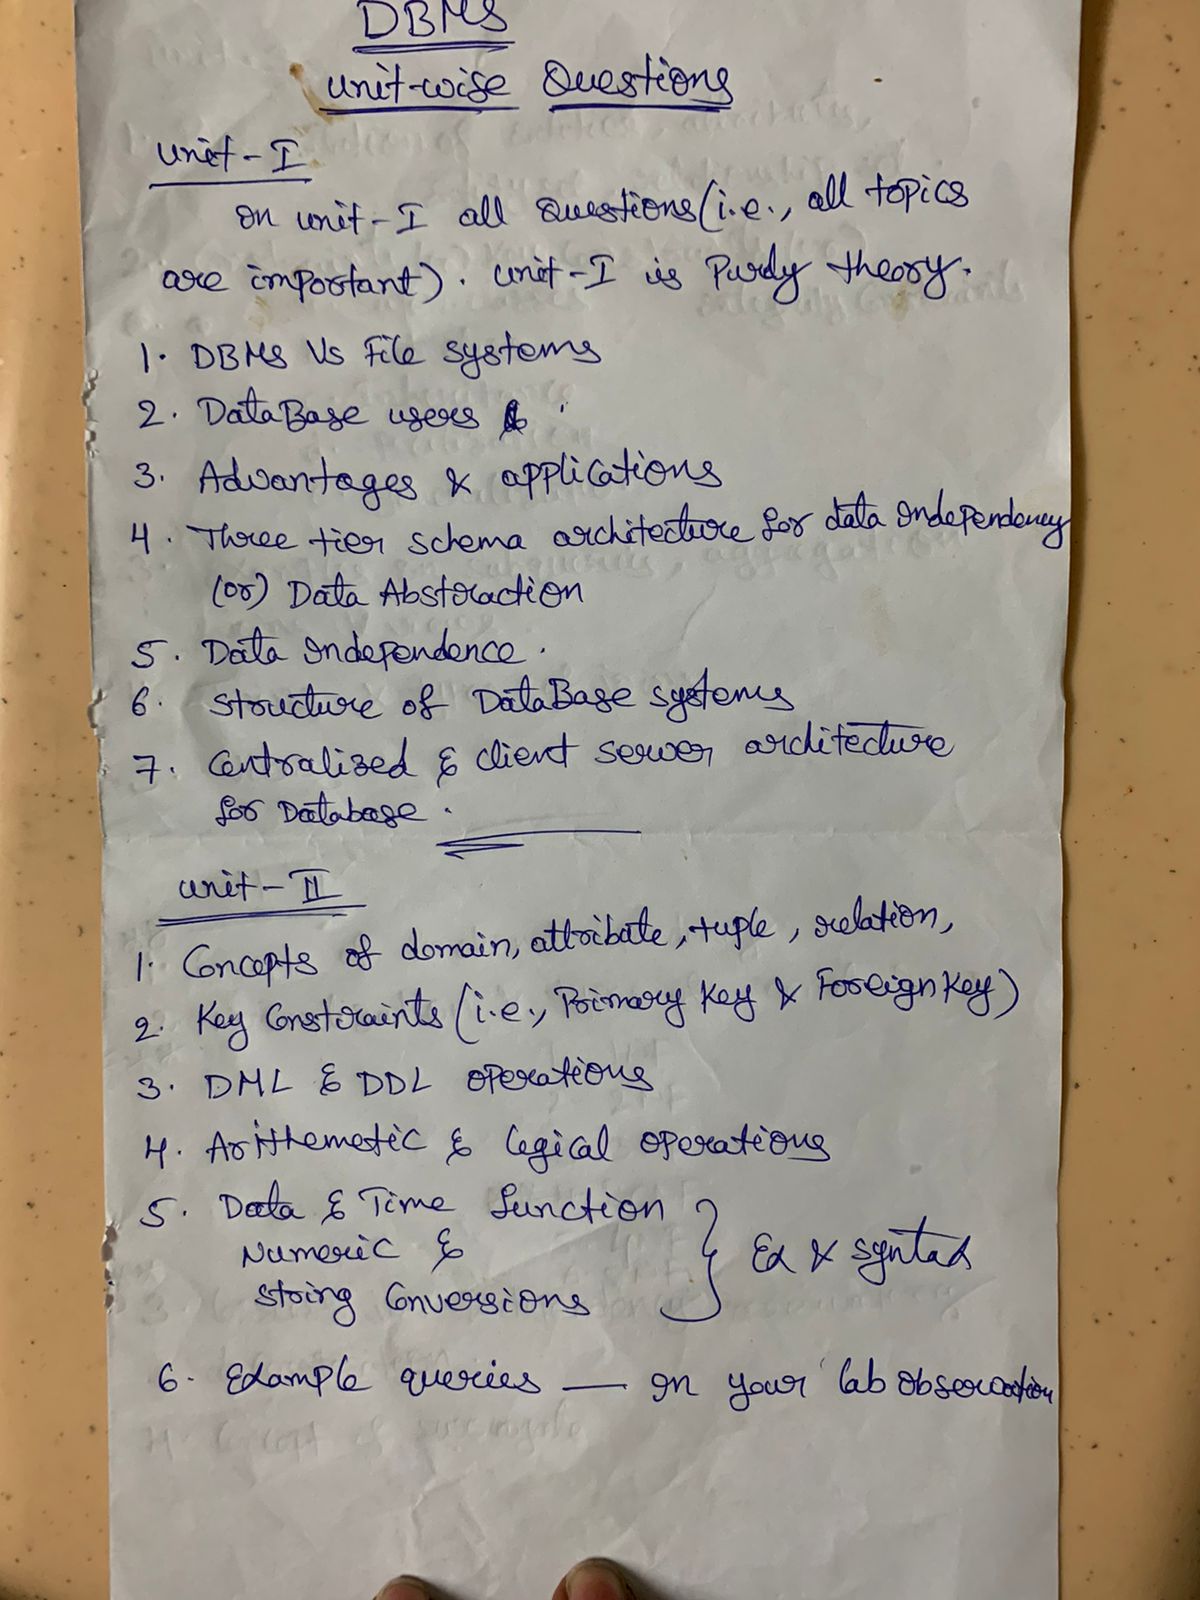 DBMS
unit-wise Questions
unit-I
on unit-I all Questions (i.e., all topics
are important). unit-I is Purely theory.
1. DBMS Vs File systems
2. DataBase users &
3. Advantages & applications
4. Three tier schema architecture for data Independency
(or) Data Abstraction
5. Data Independence.
6. structure of DataBase systems
7. Centralized & client server architecture
for Database.
unit-II
1. Concepts of domain, attribute, tuple, relation,
2. Key Constraints (i.e., Primary Key & Foreign Key)
3. DML & DDL operations
4. Arithemetic & logical operations
5. Data & Time function
Numeric &
string Conversions
Ex & syntax
6. Example queries — In your lab observation